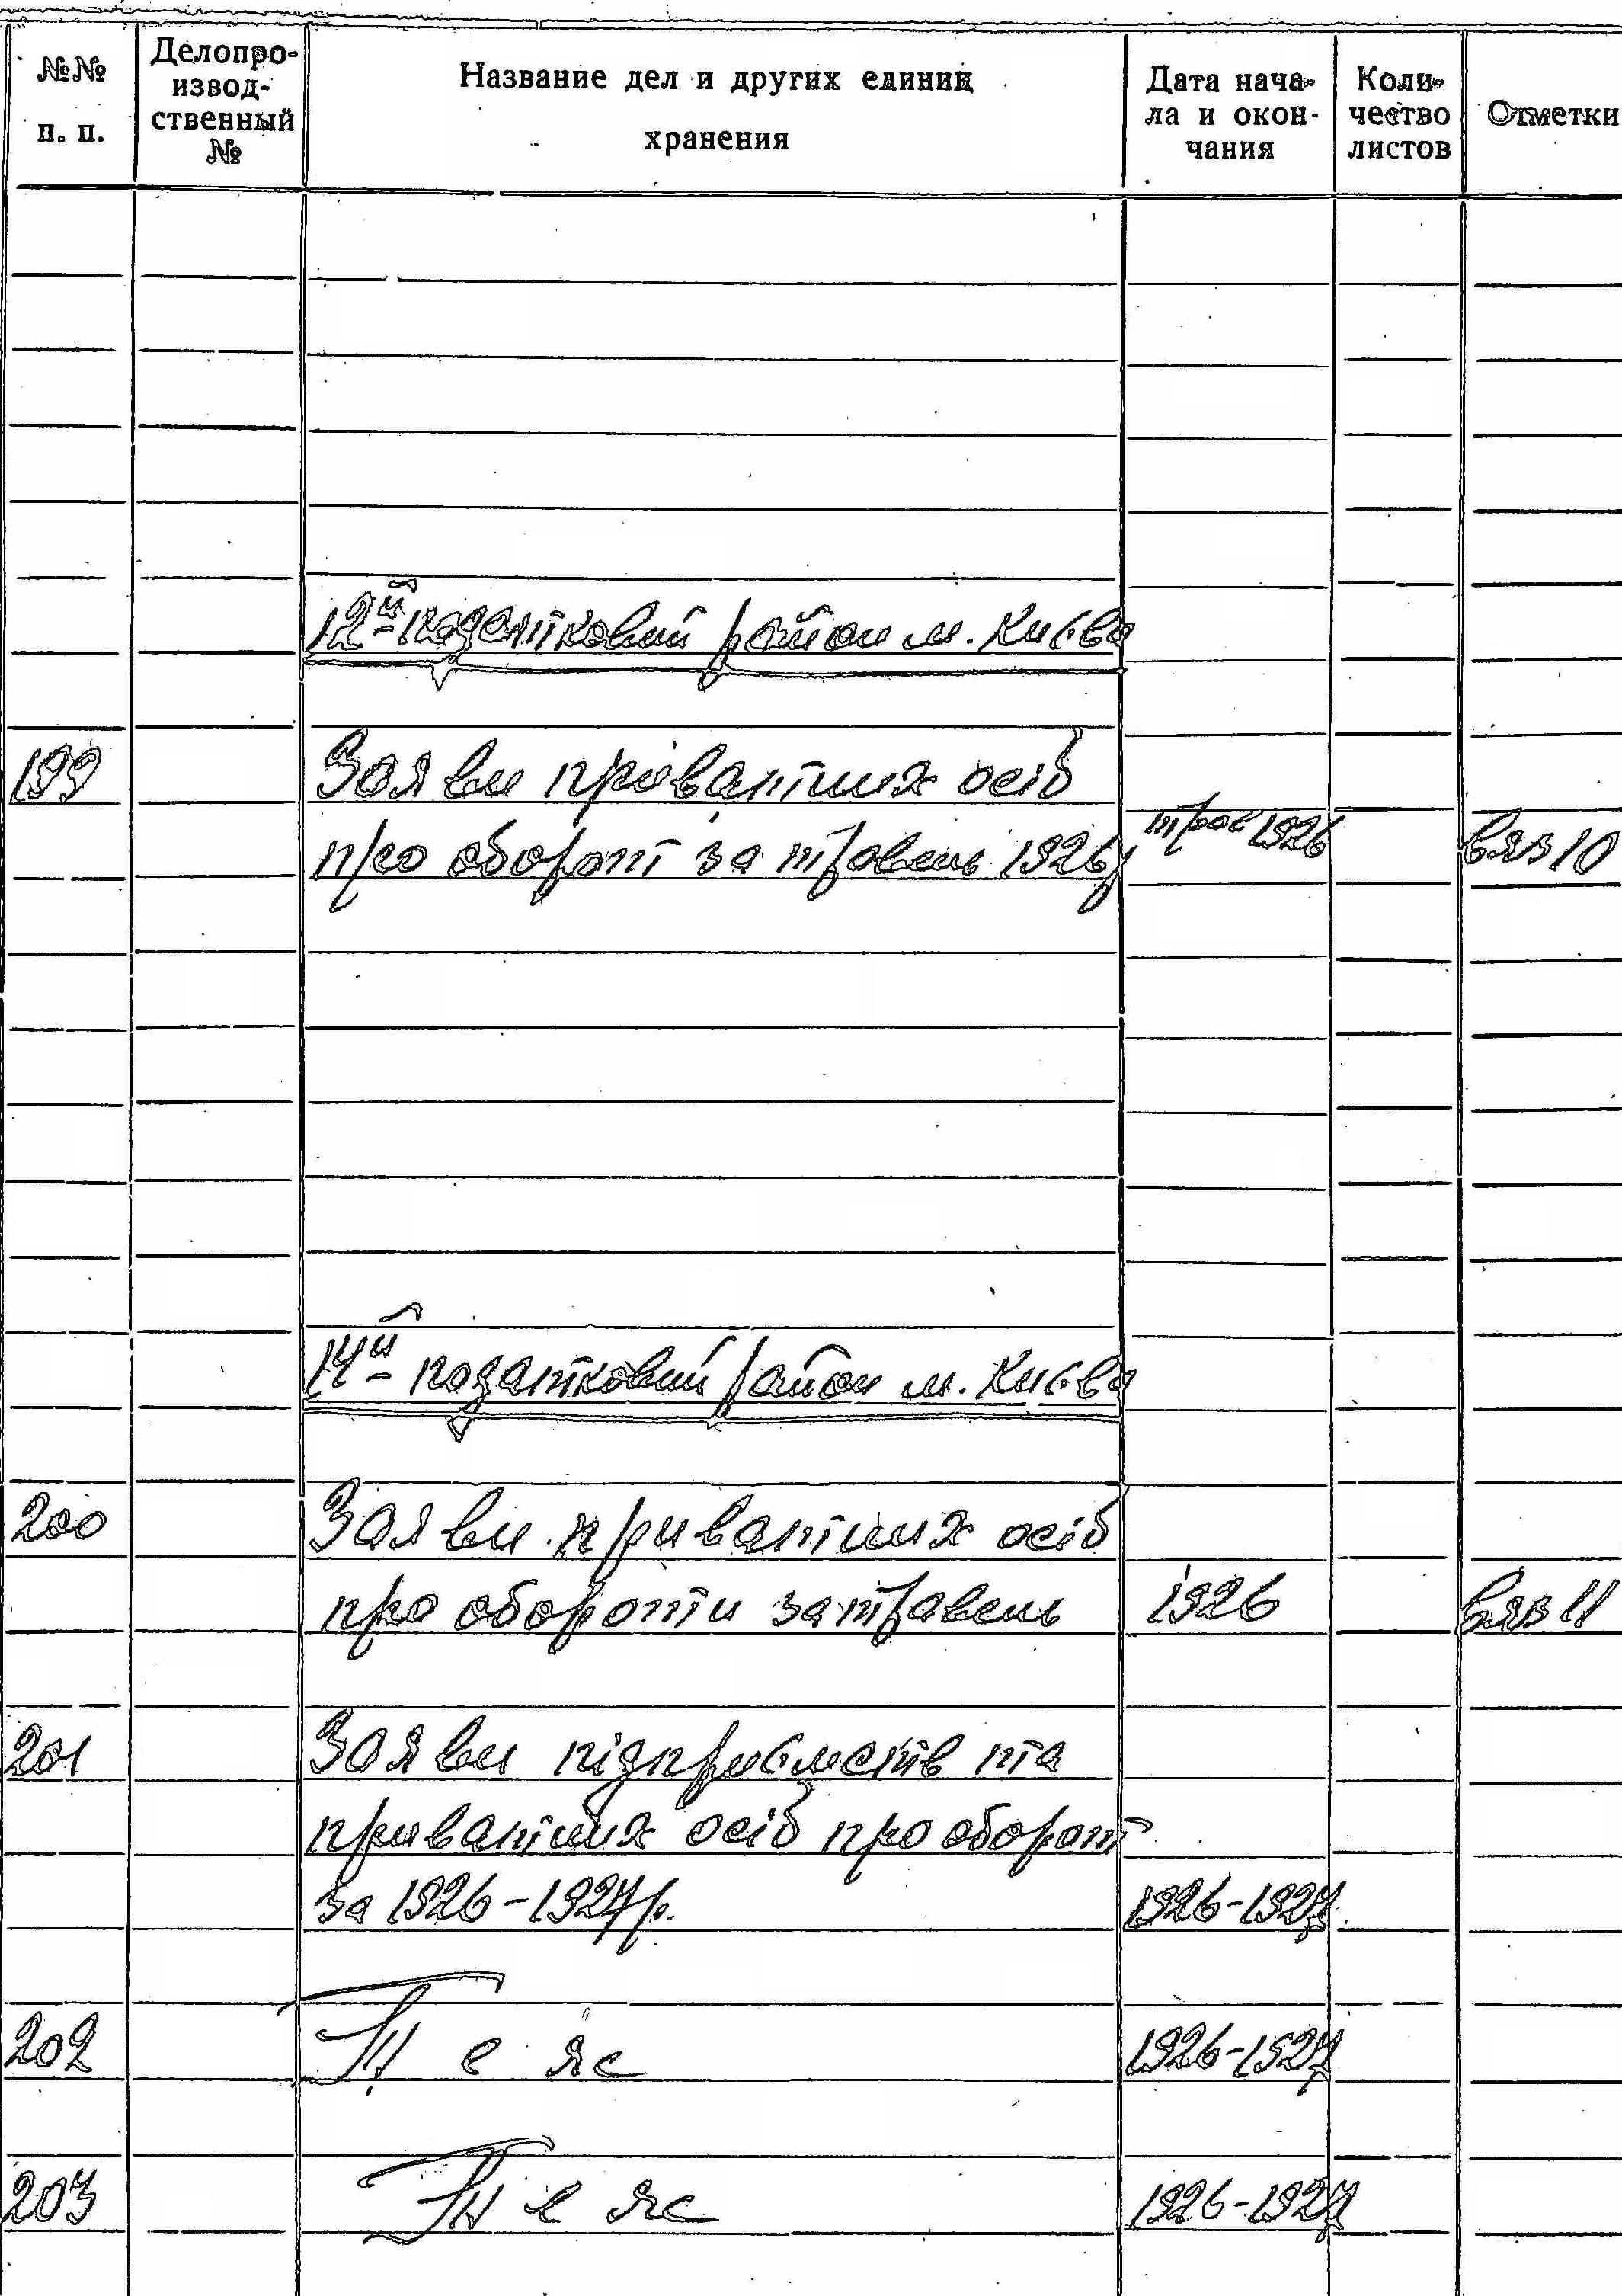 №№ п. п.
Делопро-
извод-
ственный
№
Название дел и других единиц
хранения
Дата нача-
ла и окон-
чания
Коли-
чество
листов
Отметки
12й - податковий район м. Києва
199 Заяви приватних осіб
про оборот за травень 1926р трав 1926 вяз 10
14й - податковий район м. Києва
200 Заяви приватних осіб
про обороти за травень 1926 вяз 11
201 Заяви підприємств та
приватних осіб про оборот
за 1926-1927р. 1926-1927
202 Те ж 1926-1927
203 Те ж 1926-1927